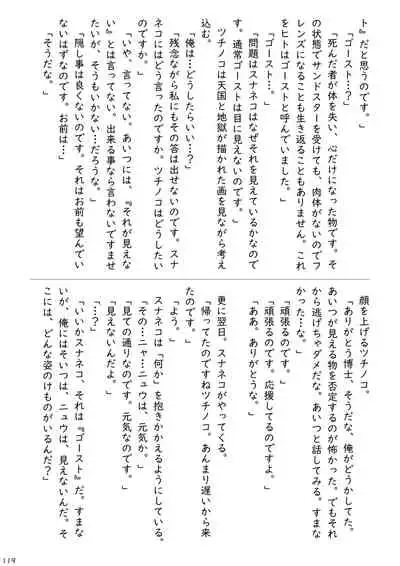 ト』だと思うのです。」
「ゴースト…？」
「死んだ者が体を失い、心だけになった物です。そ
の状態でサンドスターを受けても、肉体がないのでフ
レンズになることも生き返ることもありません。これ
をヒトはゴーストと呼んでいました。」
「ゴースト…。」
「問題はスナネコはなぜそれを見えているかなので
す。通常ゴーストは目に見えないのです。」
ツチノコは天国と地獄が描かれた画を見ながら考え
込む。
「俺は…どうしたらいい…。」
「残念ながら私にもその答は出せないのです。スナ
ネコにはどう言ったのですか。ツチノコはどうしたい
のですか。」
「いや、言ってない。あいつには、『それが見えな
い』とは言ってない。出来る事なら言わないですませ
たいが、そうもいかない…だろうな。」
「隠し事は良くないのです。それはお前も望んでい
ないはずなのです。お前は…」
「そうだな。」
顔を上げるツチノコ。
「ありがとう博士、そうだな、俺がどうかしてた。
あいつが見える物を否定するのが怖かった。でもそれ
から逃げちゃダメだな。あいつと話してみる。すまな
かった…な。」
「頑張るのです。」
「頑張るのです。応援してるのですよ。」
「ああ。ありがとうな。」
更に翌日。スナネコがやってくる。
「帰ってたのですねツチノコ。あんまり遅いから来
たのです。」
「よう。」
スナネコは「何か」を抱きかかえるようにしている。
「その…ニャ…ニュウは、元気か。」
「見ての通りなのです。元気なのです。」
「見えないんだよ。」
「…？」
「いいかスナネコ、それは『ゴースト』だ。すまな
いが、俺にはそいつは、ニュウは、見えないんだ。そ
こには、どんな姿のけものがいるんだ？」
119